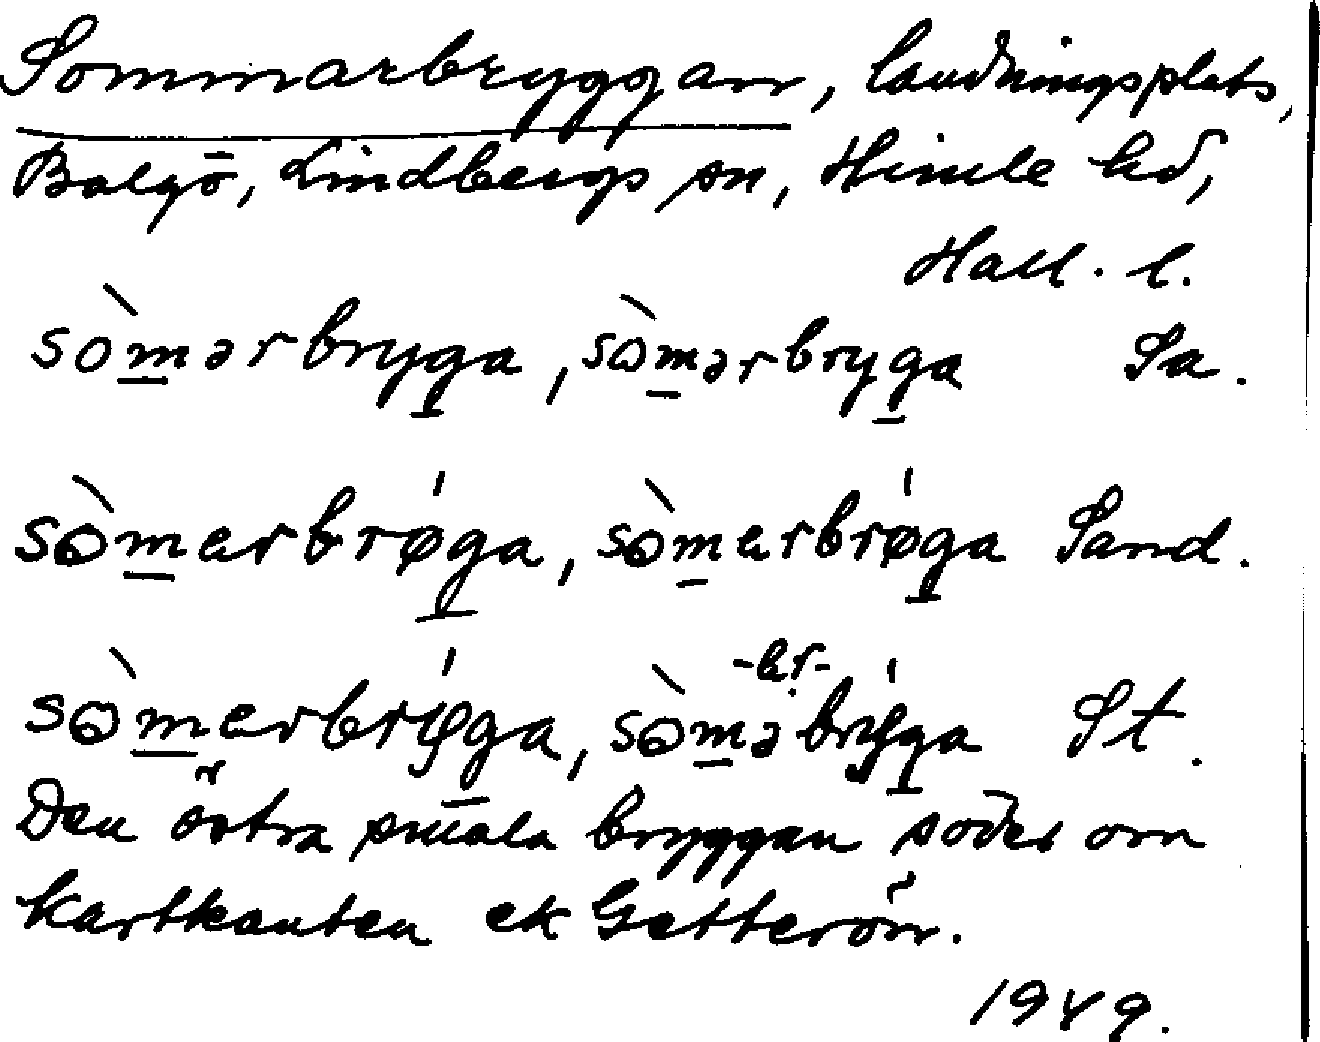 Sommarbryggan, landningsplats,
Balgö, Lindbergs sn, Himle hd,
Hall. l.
sòmərbryga, sòmərbryga Sa.
sòmerbrøga, sòmerbrøga Sand.
-er-
sòmerbryga, sòməbryga St.
Den östra smala bryggan söder om
kartkanten ek Getterön.
1949.